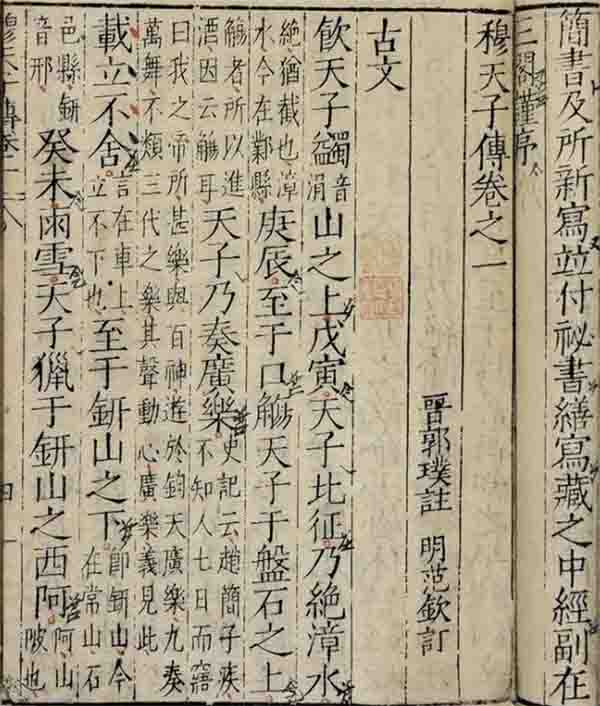 簡書及所新寫竝付祕書繕寫藏之中經副在
三閣謹序
穆天子傳卷之一
晉郭璞註 明范欽訂
古文
飲天子蠲音涓山之上戊寅天子北征乃絶漳水
絶猶截也漳水今在鄴縣庚辰至于□觴天子于盤石之上
觴者所以進酒因云觴耳天子乃奏廣樂史記云趙簡子疾不知人七日而寤
曰我之帝所甚樂與百神遊於鈞天廣樂九奏萬舞不類三代之樂其聲動心廣樂義見此
載立不舍言在車上立不下也至于鈃山之下即鈃山今在常山石
邑縣鈃音邢癸未雨雪天子獵于鈃山之西阿阿山陂也